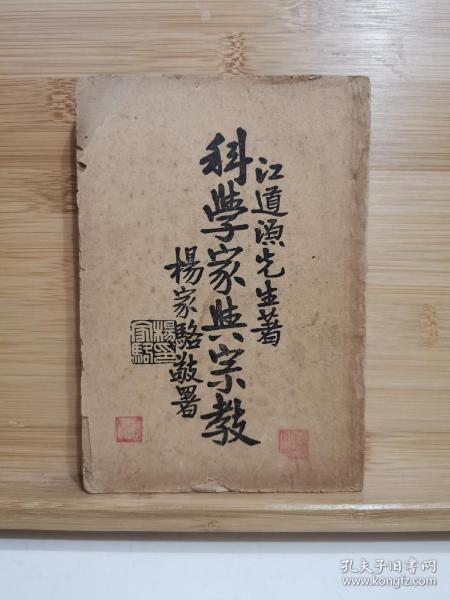 江道源先生著
科學家與宗教
楊家駱敬署
楊家駱印
孔夫子旧书网
www.kongfz.com